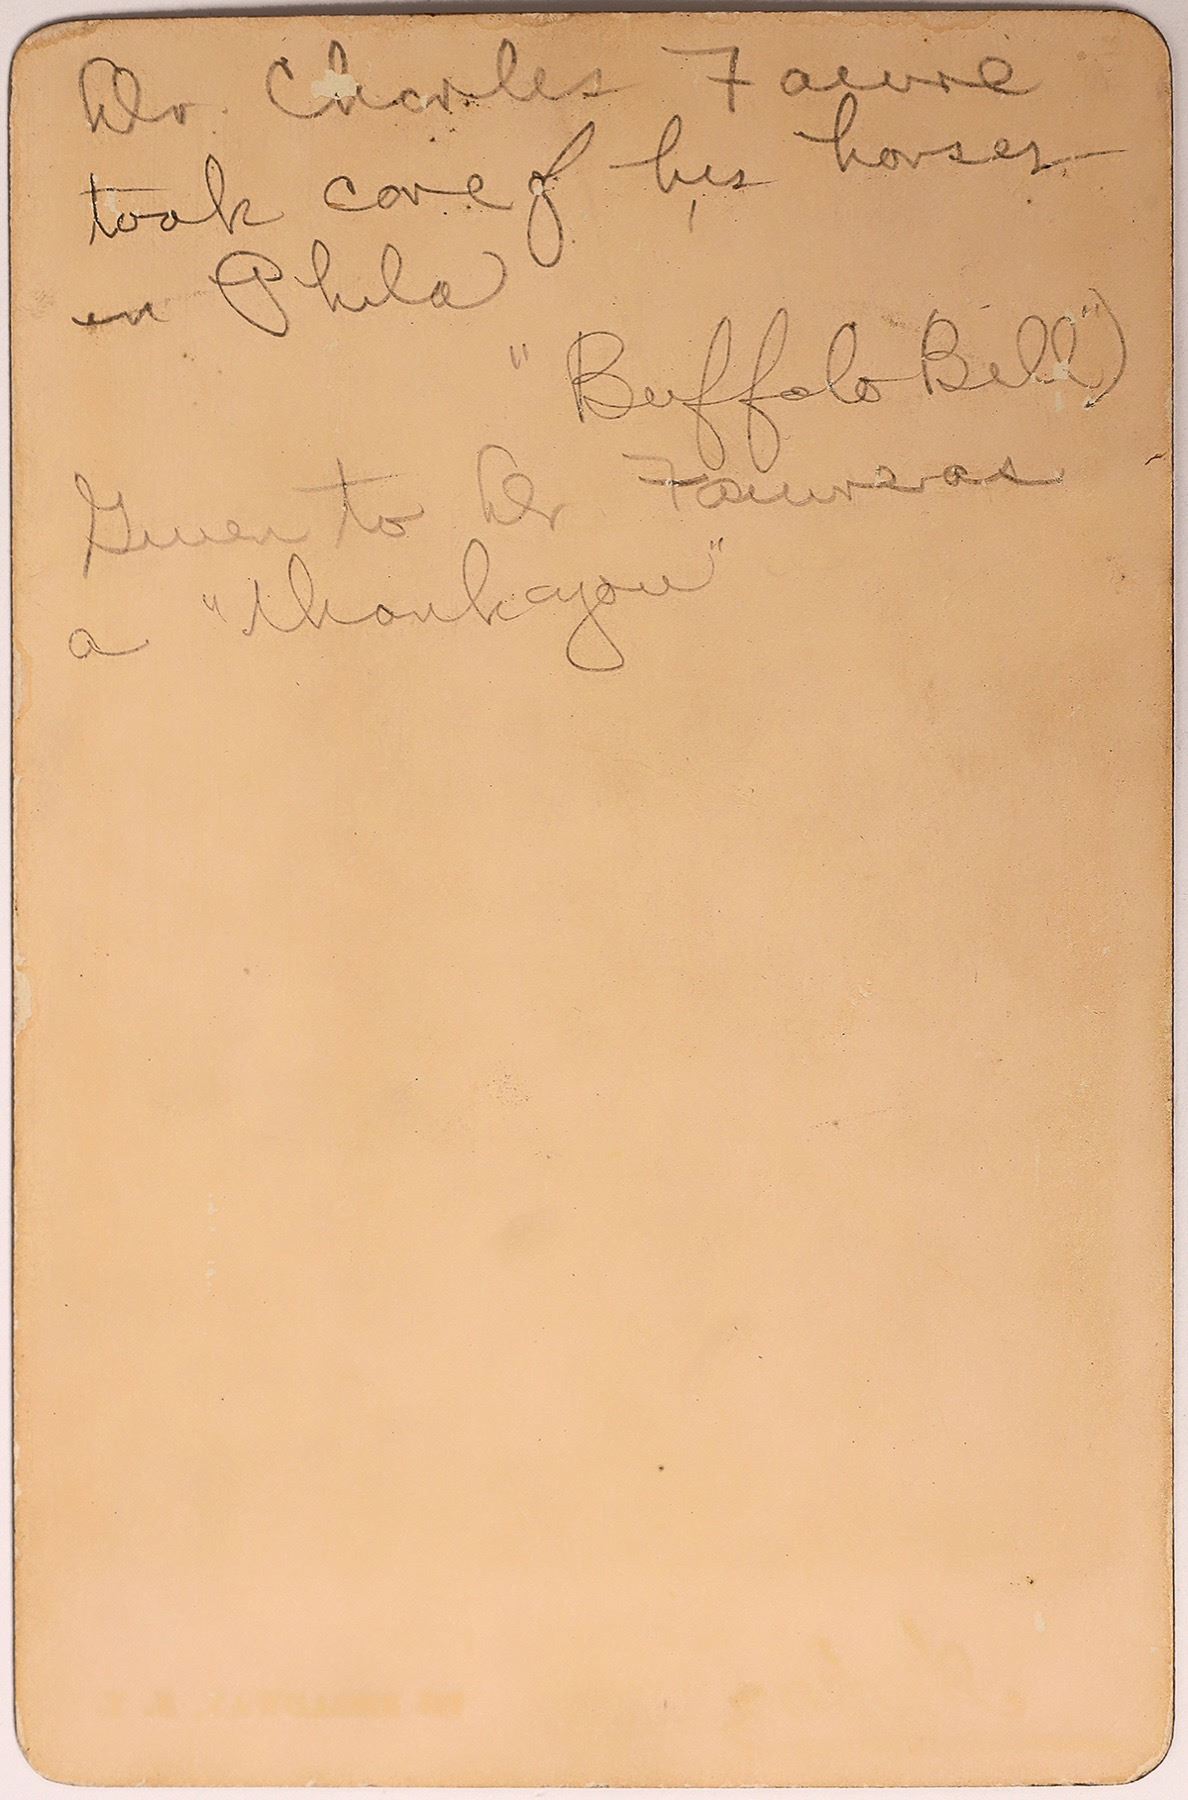 Dr. Charles Faure
took care of his horses
in Phila
"Buffalo Bill")
Given to Dr Faure as
a "thank you"
BROADWAY, N. Y.